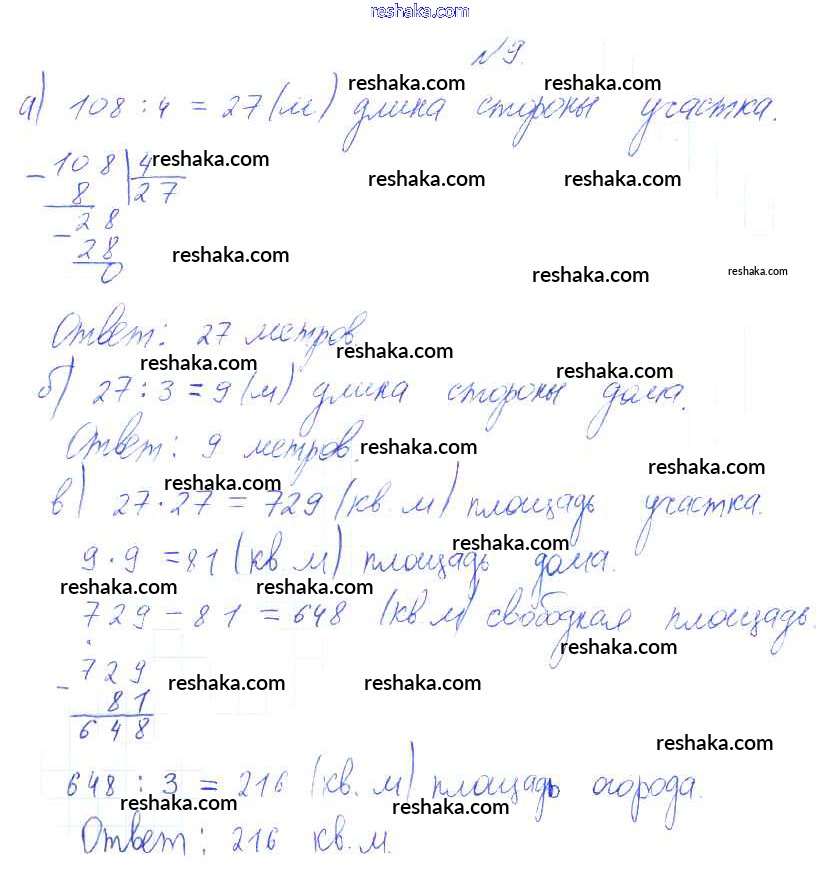 reshaka.com
№9.
reshaka.com reshaka.com
а) 108 : 4 = 27 (м) длина стороны участка.
108 4 reshaka.com
reshaka.com reshaka.com
- 8 27
- 28
28 reshaka.com
0 reshaka.com reshaka.com
Ответ: 27 метров.
reshaka.com reshaka.com reshaka.com
б) 27 : 3 = 9 (м) длина стороны дома.
Ответ: 9 метров. reshaka.com
reshaka.com reshaka.com
в) 27 · 27 = 729 (кв. м) площадь участка.
reshaka.com
9 · 9 = 81 (кв. м) площадь дома.
reshaka.com reshaka.com
729 - 81 = 648 (кв. м) свободная площадь.
reshaka.com
- 729 reshaka.com reshaka.com
81
648
reshaka.com
648 : 3 = 216 (кв. м) площадь огорода.
reshaka.com reshaka.com
Ответ: 216 кв. м.